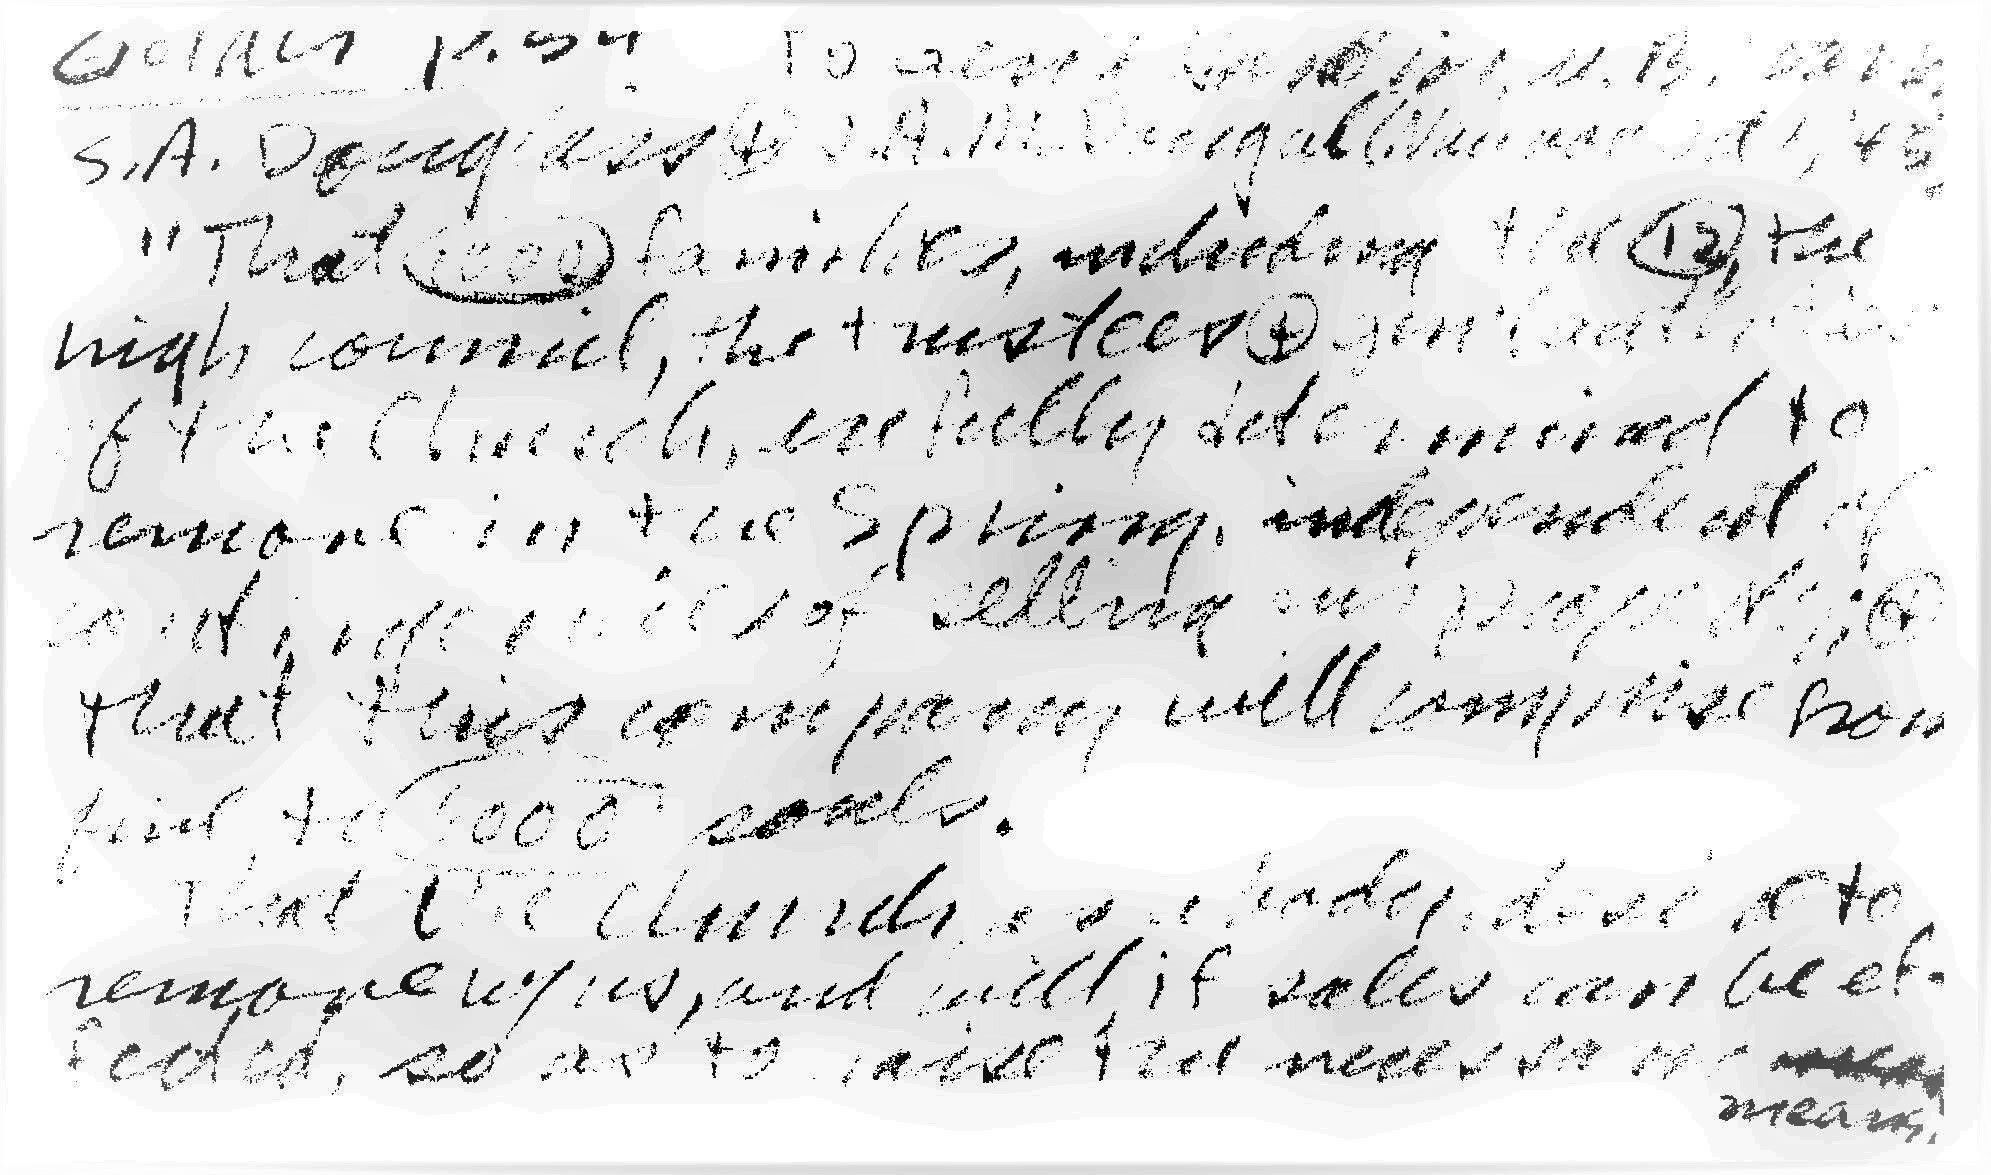 p. 34 To Genl Hardin, W. B.
S. A. Douglass & J. A. McDougal (Nauvoo Oct 1, '45,
"That 1000 families, including the 12, the
high council, the trustees & gen'l authorities
of the Church, are fully determined to
remove in the Spring, independent of
contingencies of selling our property; &
that this company will comprise from
five to 6000 souls.
That the Church, as a body, desire to
remove w/ us, and will, if sales can be ef-
fected, so as to raise the necessary
means.